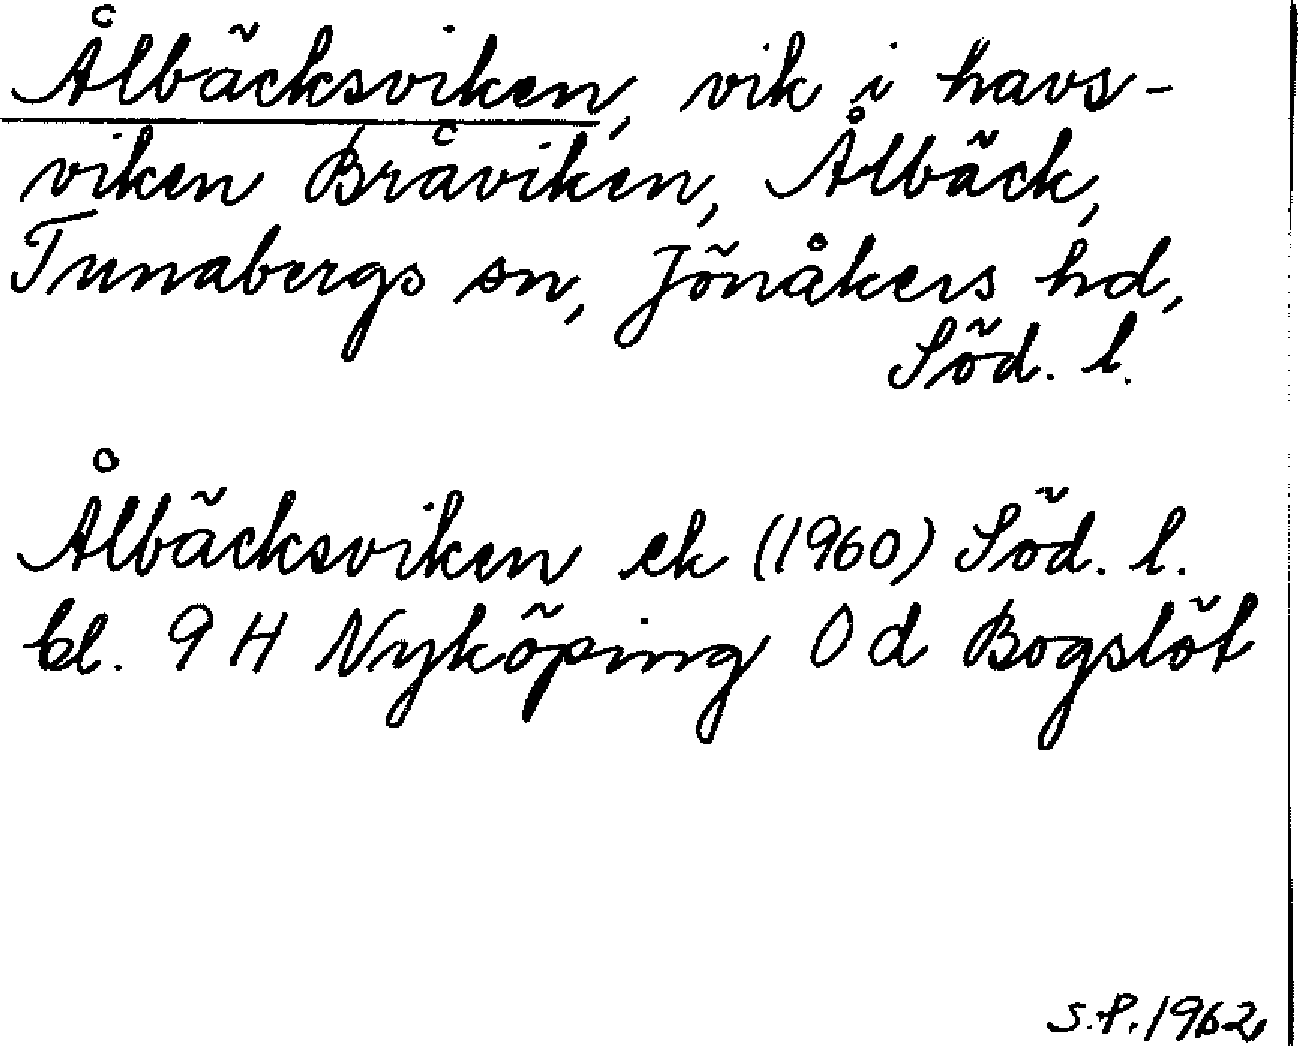 Ålbäcksviken, vik i havs-
viken Bråviken, Ålbäck,
Tunabergs sn, Jönåkers hd,
Söd. l.
Ålbäcksviken ek (1960) Söd. l.
bl. 9 H Nyköping 0 d Bogslöt
S.P. 1962